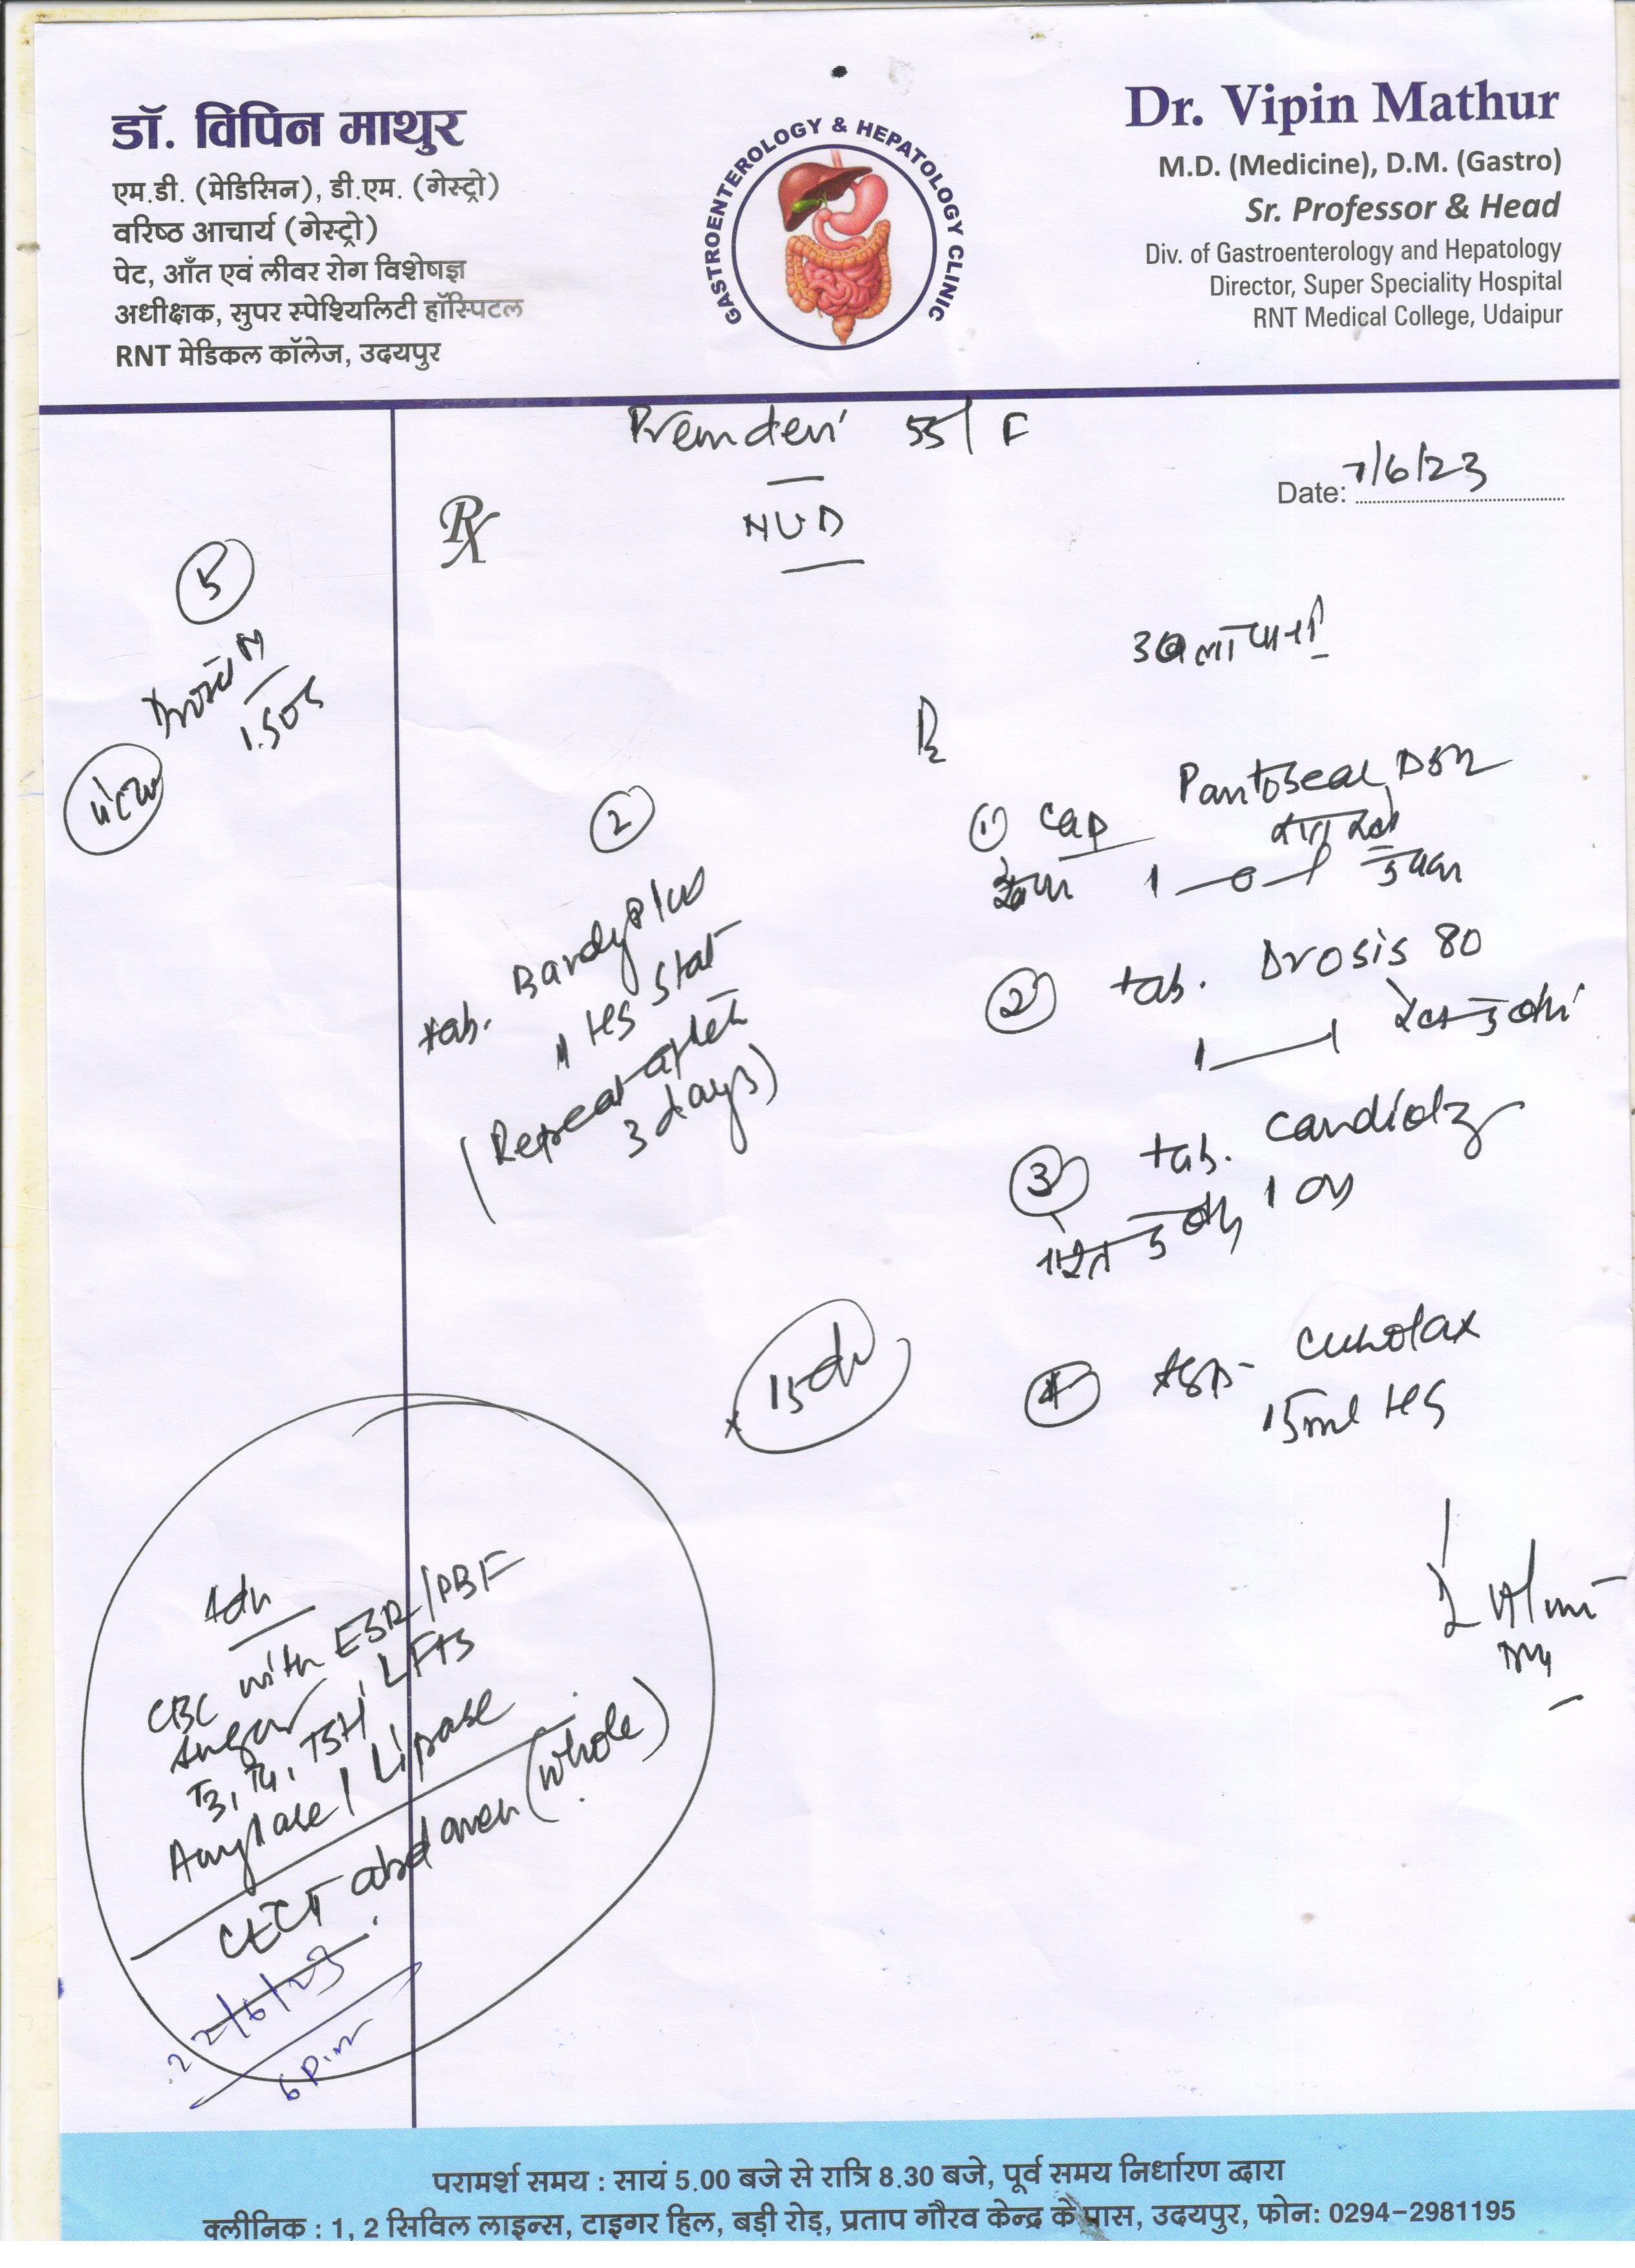 डॉ. विपिन माथुर
एम.डी. (मेडिसिन), डी.एम. (गेस्ट्रो)
वरिष्ठ आचार्य (गेस्ट्रो)
पेट, आँत एवं लीवर रोग विशेषज्ञ
अधीक्षक, सुपर स्पेश्यिलिटी हॉस्पिटल
RNT मेडिकल कॉलेज, उदयपुर
GASTROENTEROLOGY & HEPATOLOGY CLINIC
Dr. Vipin Mathur
M.D. (Medicine), D.M. (Gastro)
Sr. Professor & Head
Div. of Gastroenterology and Hepatology
Director, Super Speciality Hospital
RNT Medical College, Udaipur
Premdevi 55/F
Date: 7/6/23
Rx
NUD
5
Drosis M
1 SOS
उबला पानी
Rx
① Cap Pantoseal DSR
1-0-1
② tab. Drosis 80
1 — 1
③ tab. Candiolz
1 OD
④ Cunolax
15ml HS
②
tab. Bandyplus
1 HS Stat
(Repeat after
3 days)
x 15d
Adv
CBC with ESR/PBF
Sugar, LFTs
T3, T4, TSH
Amylase / Lipase
CECT abdomen (whole)
22/6/23
6 p.m
परामर्श समय : सायं 5.00 बजे से रात्रि 8.30 बजे, पूर्व समय निर्धारण द्वारा
क्लीनिक : 1, 2 सिविल लाइन्स, टाइगर हिल, बड़ी रोड़, प्रताप गौरव केन्द्र के पास, उदयपुर, फोन: 0294-2981195